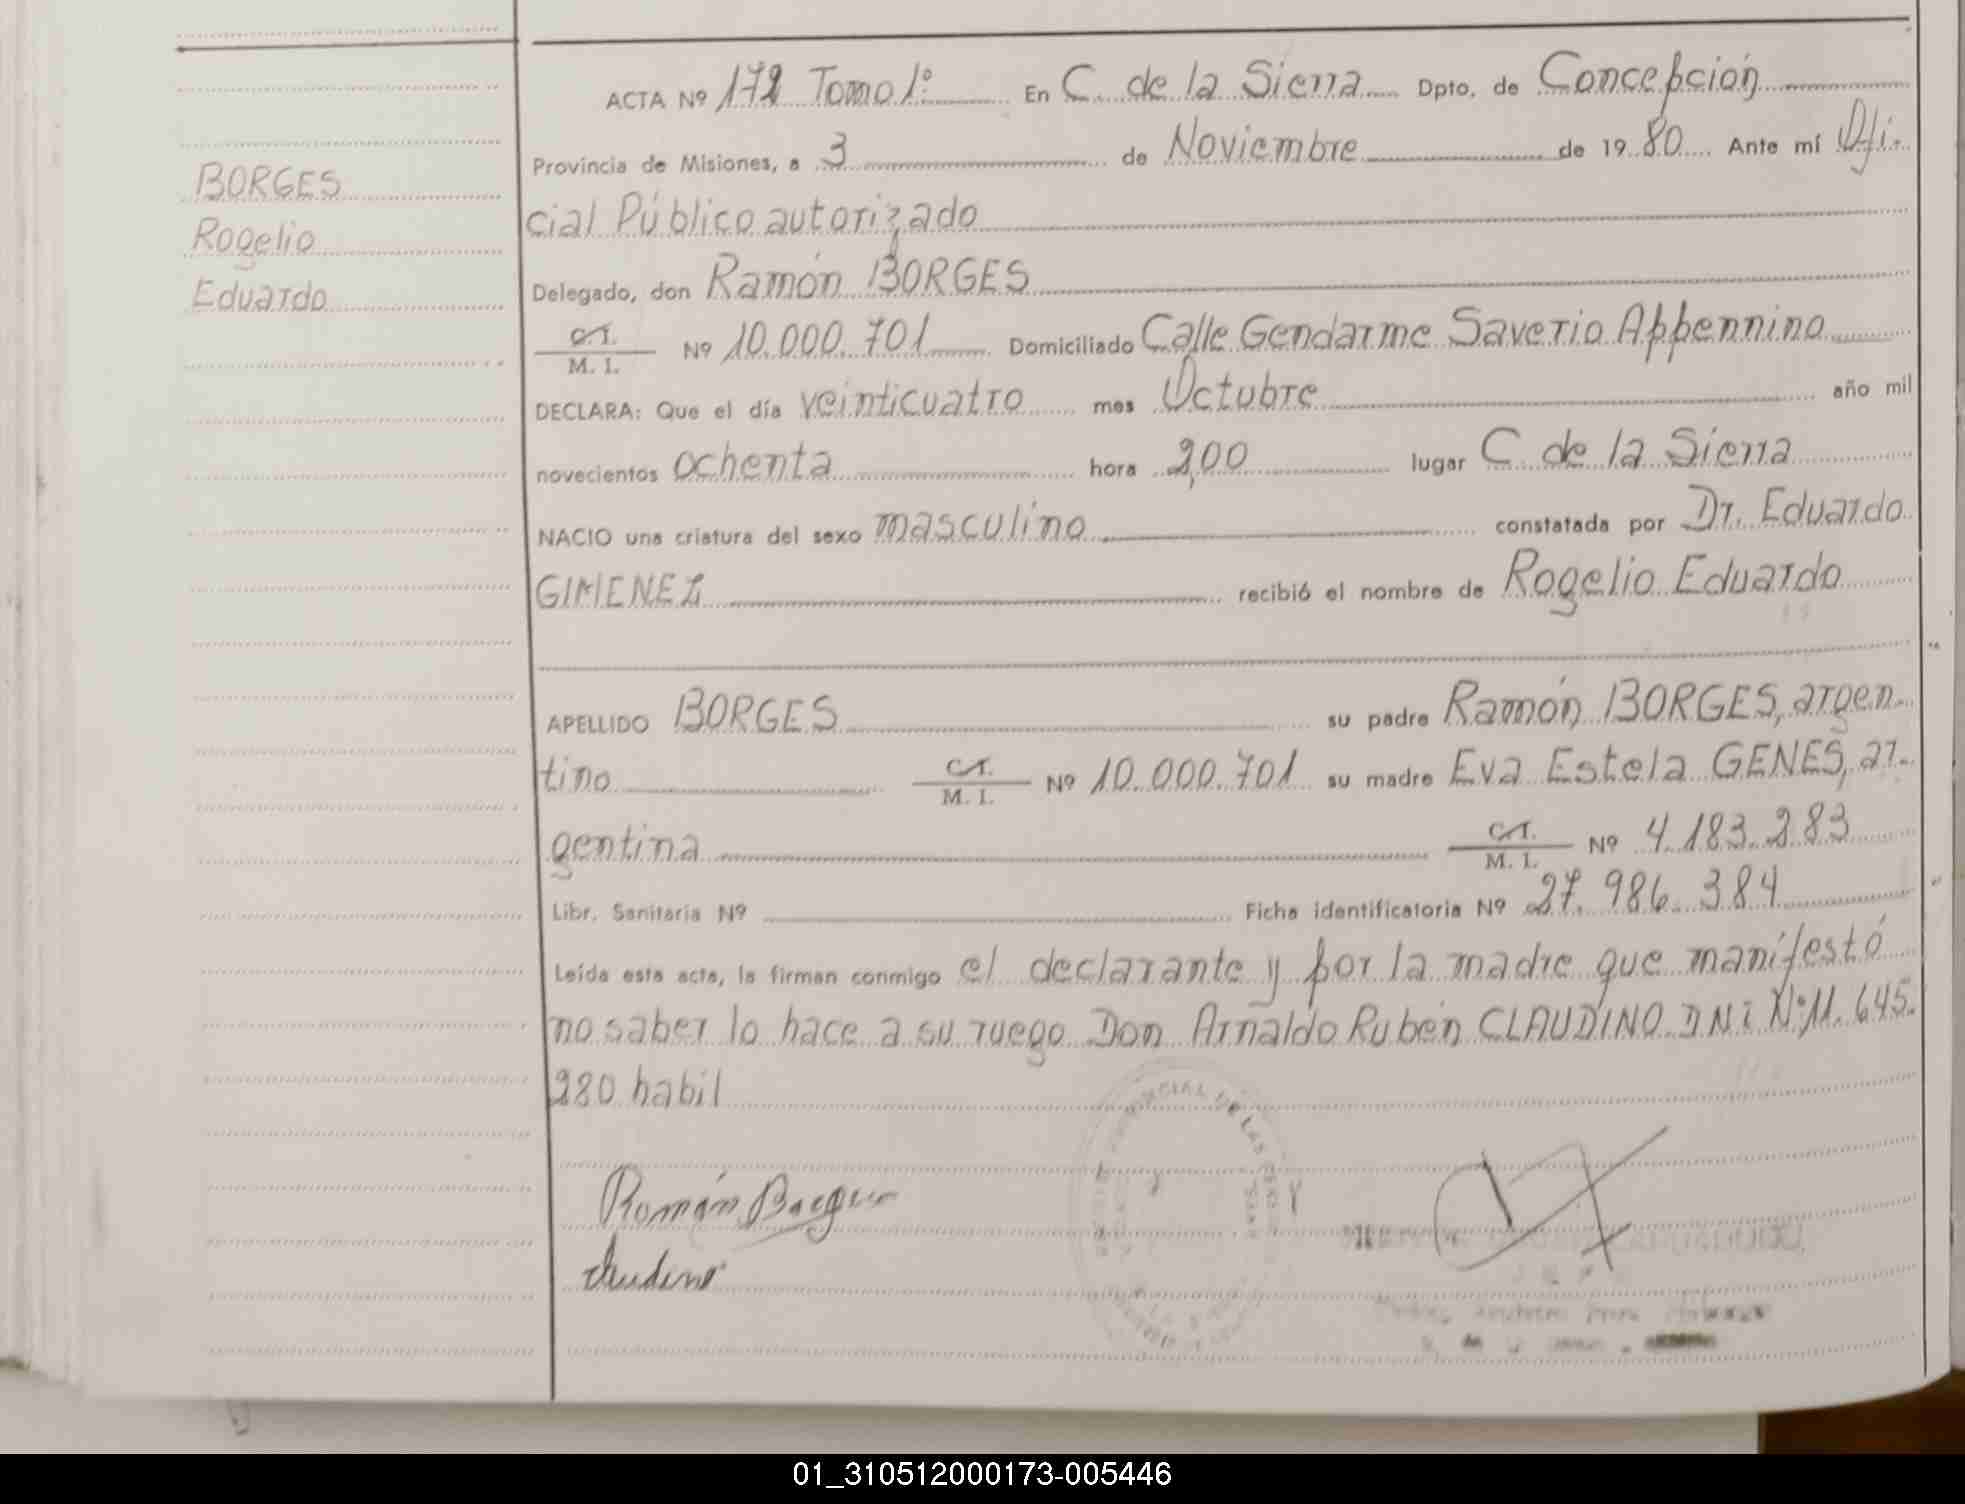 BORGES
Rogelio
Eduardo
ACTA Nº 172 Tomo 1º En C. de la Sierra Dpto. de Concepción
Provincia de Misiones, a 3 de Noviembre de 1980 Ante mí Ofi-
cial Público autorizado
Delegado, don Ramón BORGES
C.I.
M. I. Nº 10.000.701 Domiciliado Calle Gendarme Saverio Appennino
DECLARA: Que el día veinticuatro mes Octubre año mil
novecientos ochenta hora 2,00 lugar C de la Sierra
NACIO una criatura del sexo masculino constatada por Dr. Eduardo
GIMENEZ recibió el nombre de Rogelio Eduardo
APELLIDO BORGES su padre Ramón BORGES, argen-
tino C.I. M. I. Nº 10.000.701 su madre Eva Estela GENES, ar-
gentina C.I. M. I. Nº 4.183.283
Libr. Sanitaria Nº Ficha identificatoria Nº 27.986.384
Leída esta acta, la firman conmigo el declarante y por la madre que manifestó
no saber lo hace a su ruego Don Arnaldo Rubén CLAUDINO DNI Nº 11.645.
280 habil
Ramón Borges
01_310512000173-005446